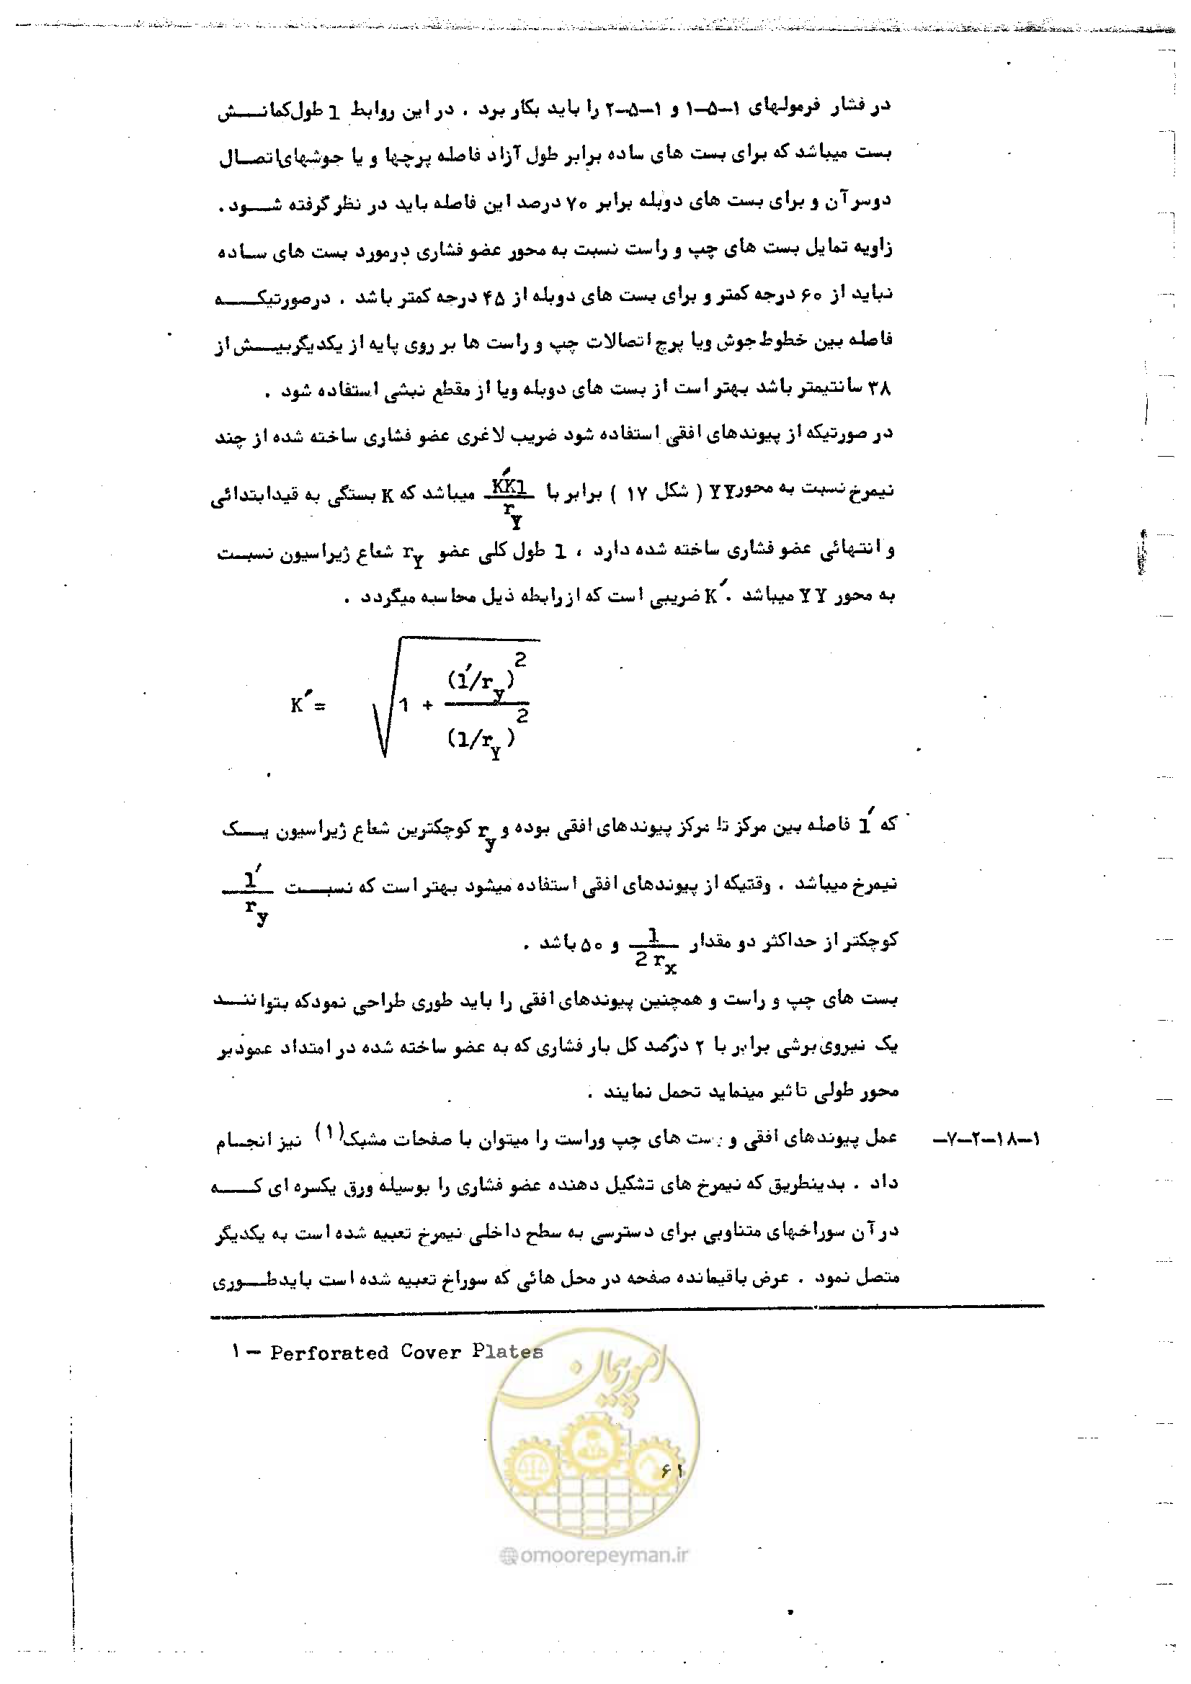 در فشار فرمولهای ۱–۵–۱ و ۱–۵–۲ را باید بکار برد . در این روابط l طول کمانـــش
بست میباشد که برای بست های ساده برابر طول آزاد فاصله پرچها و یا جوشهای اتصـال
دوسر آن و برای بست های دوبله برابر ۷۰ درصد این فاصله باید در نظر گرفته شـــود .
زاویه تمایل بست های چپ و راست نسبت به محور عضو فشاری درمورد بست های سـاده
نباید از ۶۰ درجه کمتر و برای بست های دوبله از ۴۵ درجه کمتر باشد . درصورتیکــــه
فاصله بین خطوط جوش ویا پرچ اتصالات چپ و راست ها بر روی پایه از یکدیگر بیـــش از
۳۸ سانتیمتر باشد بهتر است از بست های دوبله ویا از مقطع نبشی استفاده شود .
در صورتیکه از پیوندهای افقی استفاده شود ضریب لاغری عضو فشاری ساخته شده از چند
نیمرخ نسبت به محور YY ( شکل ۱۷ ) برابر با KK′l / rY میباشد که K بستگی به قیدابتدائی
و انتهائی عضو فشاری ساخته شده دارد ، l طول کلی عضو rY شعاع ژیراسیون نسبـت
به محور YY میباشد . K′ ضریبی است که از رابطه ذیل محاسبه میگردد .
K′= √(1 + (l′/ry)2 / (l/rY)2)
که l′ فاصله بین مرکز تا مرکز پیوندهای افقی بوده و ry کوچکترین شعاع ژیراسیون یـــک
نیمرخ میباشد . وقتیکه از پیوندهای افقی استفاده میشود بهتر است که نسبـــت l′ / ry
کوچکتر از حداکثر دو مقدار l / 2 rx و ۵۰ باشد .
بست های چپ و راست و همچنین پیوندهای افقی را باید طوری طراحی نمودکه بتوا ننــد
یک نیروی برشی برابر با ۲ درصد کل بار فشاری که به عضو ساخته شده در امتداد عمودبر
محور طولی تاثیر مینماید تحمل نمایند .
۱–۱۸–۲–۷– عمل پیوندهای افقی و بست های چپ وراست را میتوان با صفحات مشبک(۱) نیز انجـام
داد . بدینطریق که نیمرخ های تشکیل دهنده عضو فشاری را بوسیله ورق یکسره ای کــــه
در آن سوراخهای متناوبی برای دسترسی به سطح داخلی نیمرخ تعبیه شده است به یکدیگر
متصل نمود . عرض باقیمانده صفحه در محل هائی که سوراخ تعبیه شده است بایدطـــوری
۱ – Perforated Cover Plates
امور پیمان
۶۱
@omoorepeyman.ir